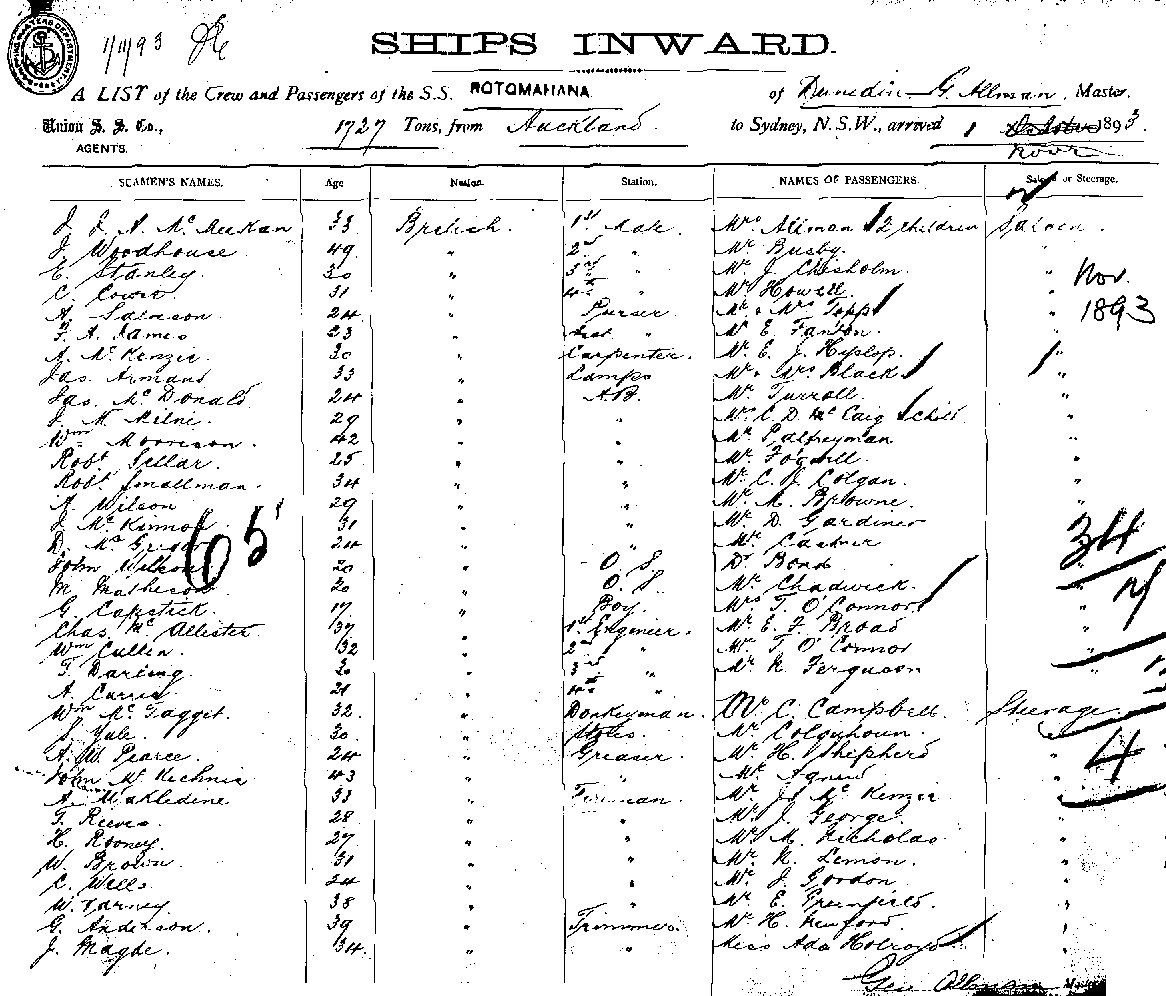 1/11/93
SHIPS INWARD.
A LIST of the Crew and Passengers of the S.S. ROTOMAHANA. of Dunedin G. Allman, Master.
Union S. S. Co., 1727 Tons, from Auckland to Sydney, N.S.W., arrived 1 October 1893.
AGENTS. Novr
SEAMEN'S NAMES. Age Nation. Station. NAMES OF PASSENGERS. Saloon or Steerage.
J. J. A. 33 British 1st Mate Mrs Allman 2 children Saloon
J. Woodhouse 49 " 2nd " Mr Busby "
E. Stanley 30 " 3rd " Mr J. Chisholm " Nov.
C. 31 " 4th " Mr Howell "
A. 24 " Purser Mr & Mrs Topp " 1893
F. A. James 23 " Asst " Mr E. Fanton "
A. McKenzie 30 " Carpenter Mr E. J. Hyslop "
Jas. Armand 33 " Lamps Mr & Mrs Black "
Jas. McDonald 24 " A.B. Mr Turrall "
J. M. Milne 29 " " C. D. McCaig child "
Wm Morrison 42 " " Mr Palfreyman "
Robt Sellar 25 " " Mr "
Robt Smallman 34 " " Mr C. Colgan "
A. Wilson 29 " " Mr M. Browne "
J. McKinnon 31 " " Mr D. Gardiner
65
D. 24 " " Mr 34
John Wilson 20 " O.S. Dr Bond
M. Matheson 20 " O.S. Mr Chadwick "
G. Capstick 17 " Boy Mrs T. O'Connor "
Chas. McAllister 37 " 1st Engineer Mr E. F. Broad "
Wm Cullen 32 " 2nd " Mr T. O'Connor "
T. Darling 30 " 3rd " Mr R. Ferguson
A. Currie 21 " 4th "
Wm McTaggit 32 " Donkeyman Mr C. Campbell Steerage
S. Yule 30 " Stores Mr Colquhoun
A. W. Pearce 24 " Greaser Mr H. Shepherd " 4
John McKechnie 43 " " Mr Agnew "
A. 33 " Fireman Mr J. McKenzie
T. Reeves 28 " " Mr J. George "
H. Rooney 27 " " Mr M. Nicholas "
W. Brown 31 " " Mr R. Lemon "
C. Wells 24 " " Mr J. Gordon "
W. Varney 38 " " Mr E. Greenfield "
G. Anderson 39 " Trimmer Mr H. "
J. Magde 34 " " Miss Ada Holroyd "
Geo Allman Master